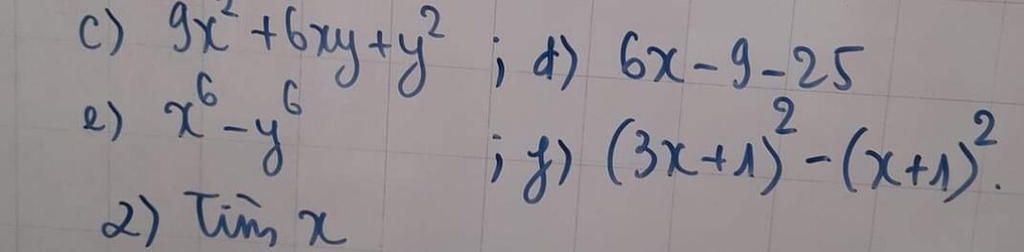 c) 9x² + 6xy + y² ; d) 6x - 9 - 25
e) x⁶ - y⁶ ; f) (3x + 1)² - (x + 1)².
2) Tìm x